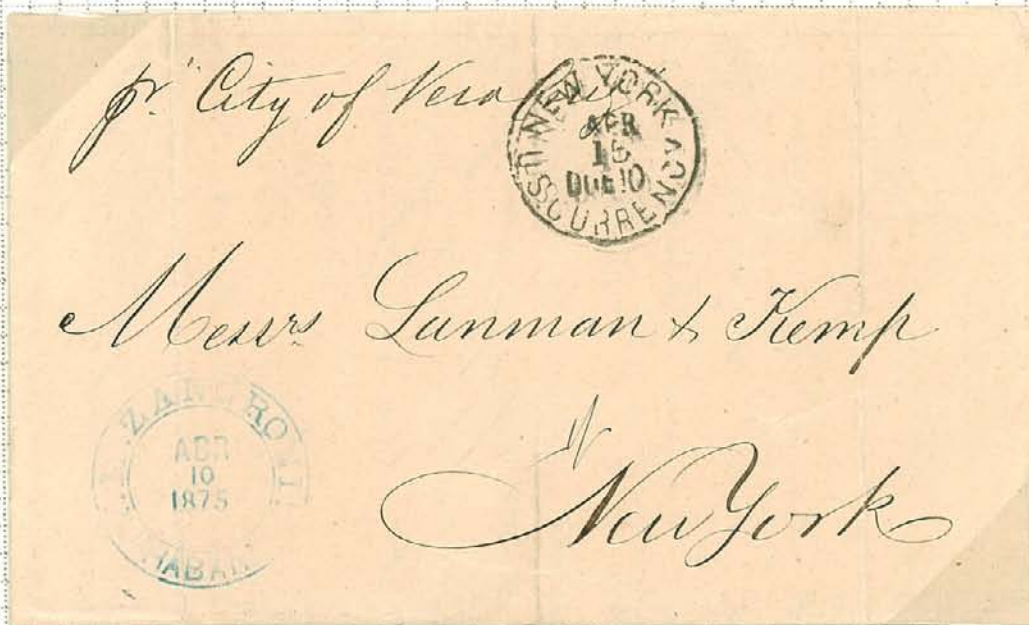 pr City of
NEW YORK
APR
15
DUE 10
U.S. CURRENCY
Messrs Lanman & Kemp
New York
ABR
10
1875